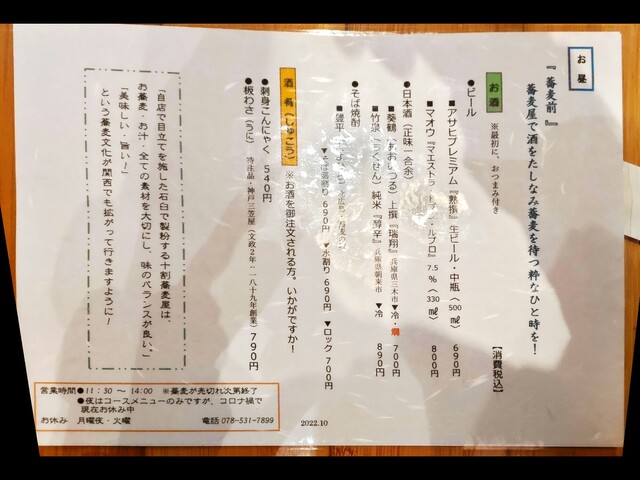 お昼
『蕎麦前』
蕎麦屋で酒をたしなみ蕎麦を待つ粋なひと時を!
【消費税込】
お酒 ※最初に、おつまみ付き
●ビール
■アサヒプレミアム『熟撰』生ビール・中瓶〈500㎖〉 690円
■マオウ『マエストラ・ドブレ・ルプロ』7.5%〈330㎖〉 800円
●日本酒(正味一合余)
■葵鶴(あおいつる)上撰『瑞翔』兵庫県三木市▼冷・燗 700円
■竹泉(ちくせん)純米『醇辛』兵庫県朝来市 ▼冷 890円
●そば焼酎
▼そば湯割り 690円 ▼水割り 690円 ▼ロック 700円
酒肴(しゅこう) ※お酒を御注文される方。いかがですか!
●刺身こんにゃく 540円
●板わさ(うに) 特注品・神戸三笠屋(文政2年:一八十九年創業) 790円
「自店で目立てを施した石臼で製粉する十割蕎麦屋は、
お蕎麦・お汁・全ての素材を大切にし、味のバランスが良い。」
「美味しい・旨い!」
という蕎麦文化が関西でも拡がって行きますように!
営業時間●11:30 〜 14:00 ※蕎麦が売切れ次第終了
●夜はコースメニューのみですが、コロナ禍で
現在お休み中
お休み 月曜夜・火曜 電話 078-531-7899
2022.10